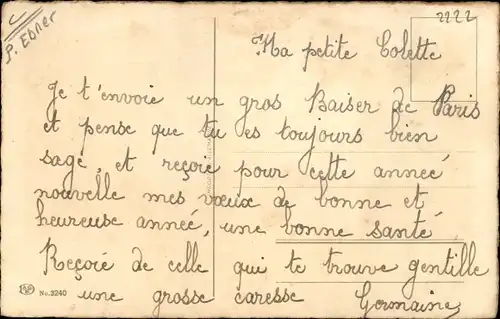 P. Ebner
2222
Ma petite Colette
Je t'envoie un gros Baiser de Paris
et pense que tu es toujours bien
sage, et reçoie pour cette anneé
nouvelle mes vœux de bonne et
heureuse anneé, une bonne santé
Reçoié de celle qui te trouve gentille
une grosse caresse Germaine
No. 3240